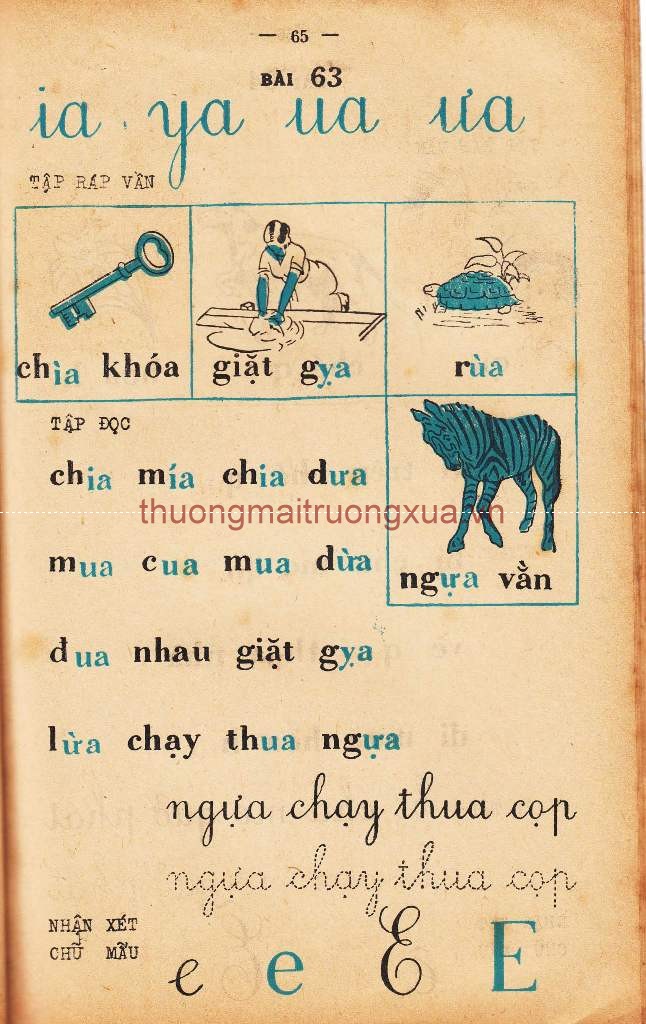 — 65 —
BÀI 63
ia ya ua ưa
TẬP RÁP VẦN
chìa khóa
giặt gỵa
rùa
ngựa vằn
TẬP ĐỌC
chia mía chia dưa
thuongmaitruongxua.vn
mua cua mua dừa
đua nhau giặt gỵa
lừa chạy thua ngựa
ngựa chạy thua cọp
ngựa chạy thua cọp
NHẬN XÉT
CHỮ MẪU
e e E E